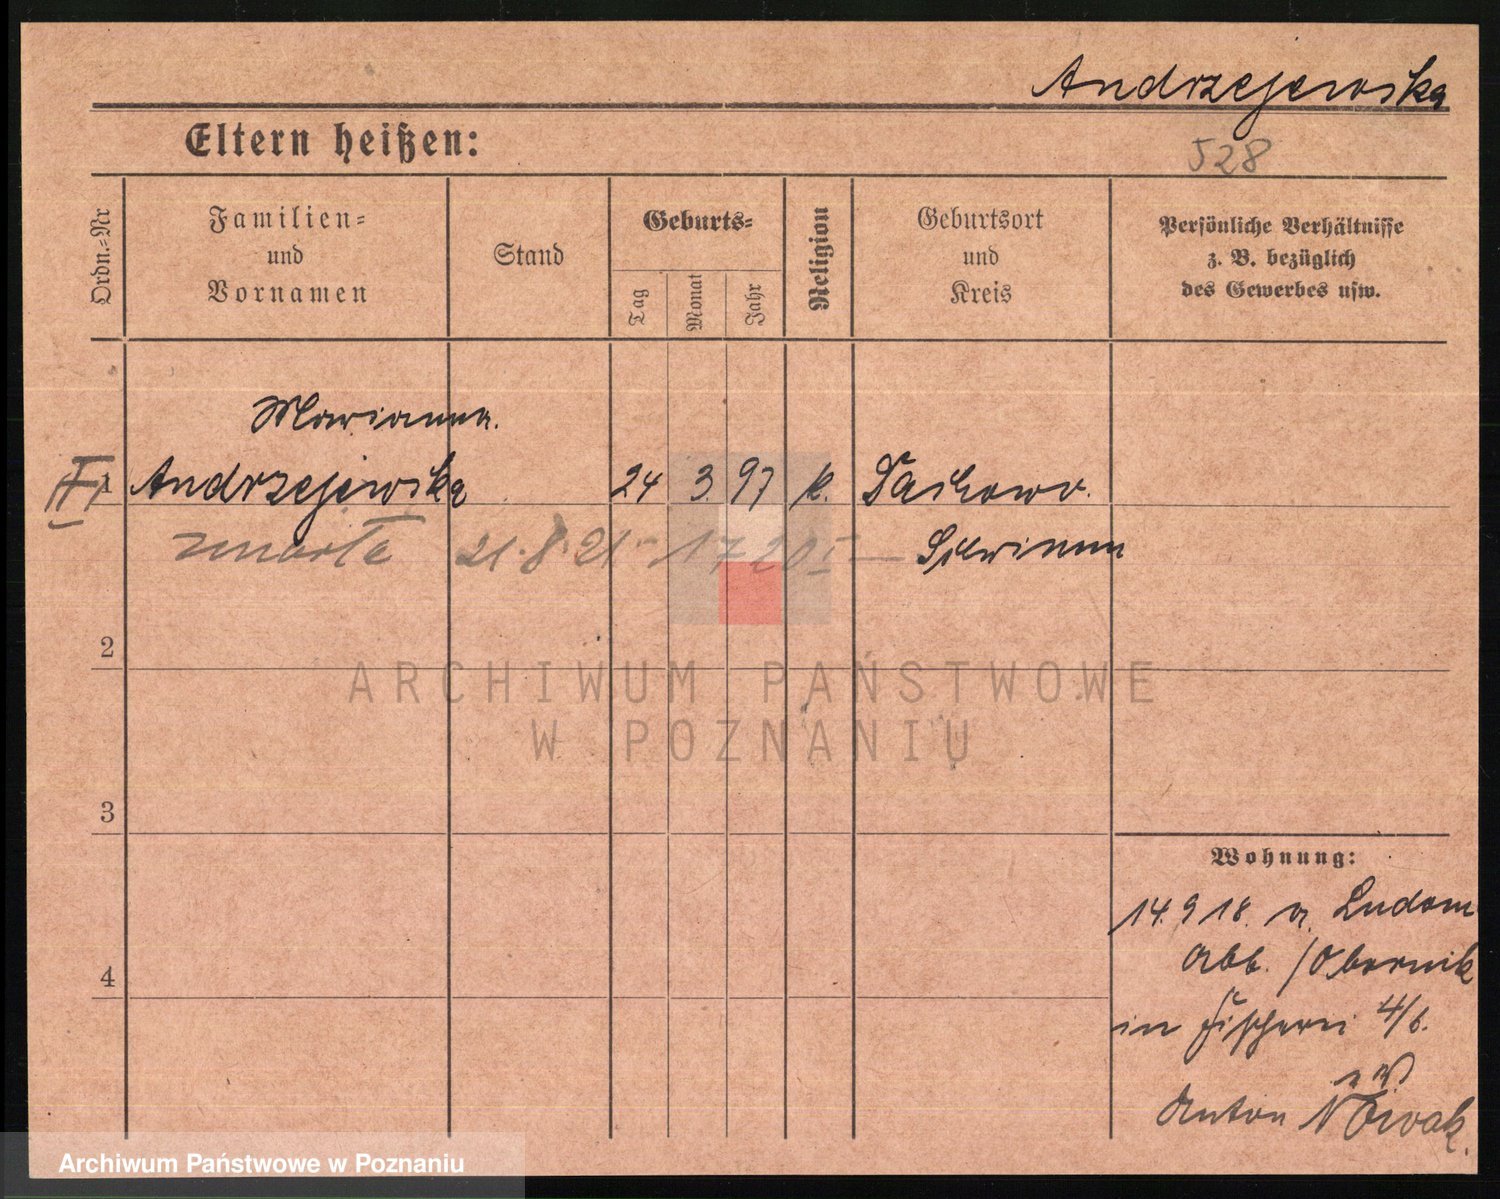 Andrzejewska
Eltern heißen:
528
Ordn.=Nr
Familien=
und
Vornamen
Stand
Geburts=
Tag
Monat
Jahr
Religion
Geburtsort
und
Kreis
Persönliche Verhältnisse
z. B. bezüglich
des Gewerbes usw.
Marianna.
1 Andrzejewska 24 3. 97 k.
zmarła 21.8.21 - 1720 Schrimm
2
ARCHIWUM PAŃSTWOWE
W POZNANIU
3
Wohnung:
14.9 18. a. Ludom
abb. /Obornik
4
in Fischerei 4/6.
Anton Nowak.
Archiwum Państwowe w Poznaniu